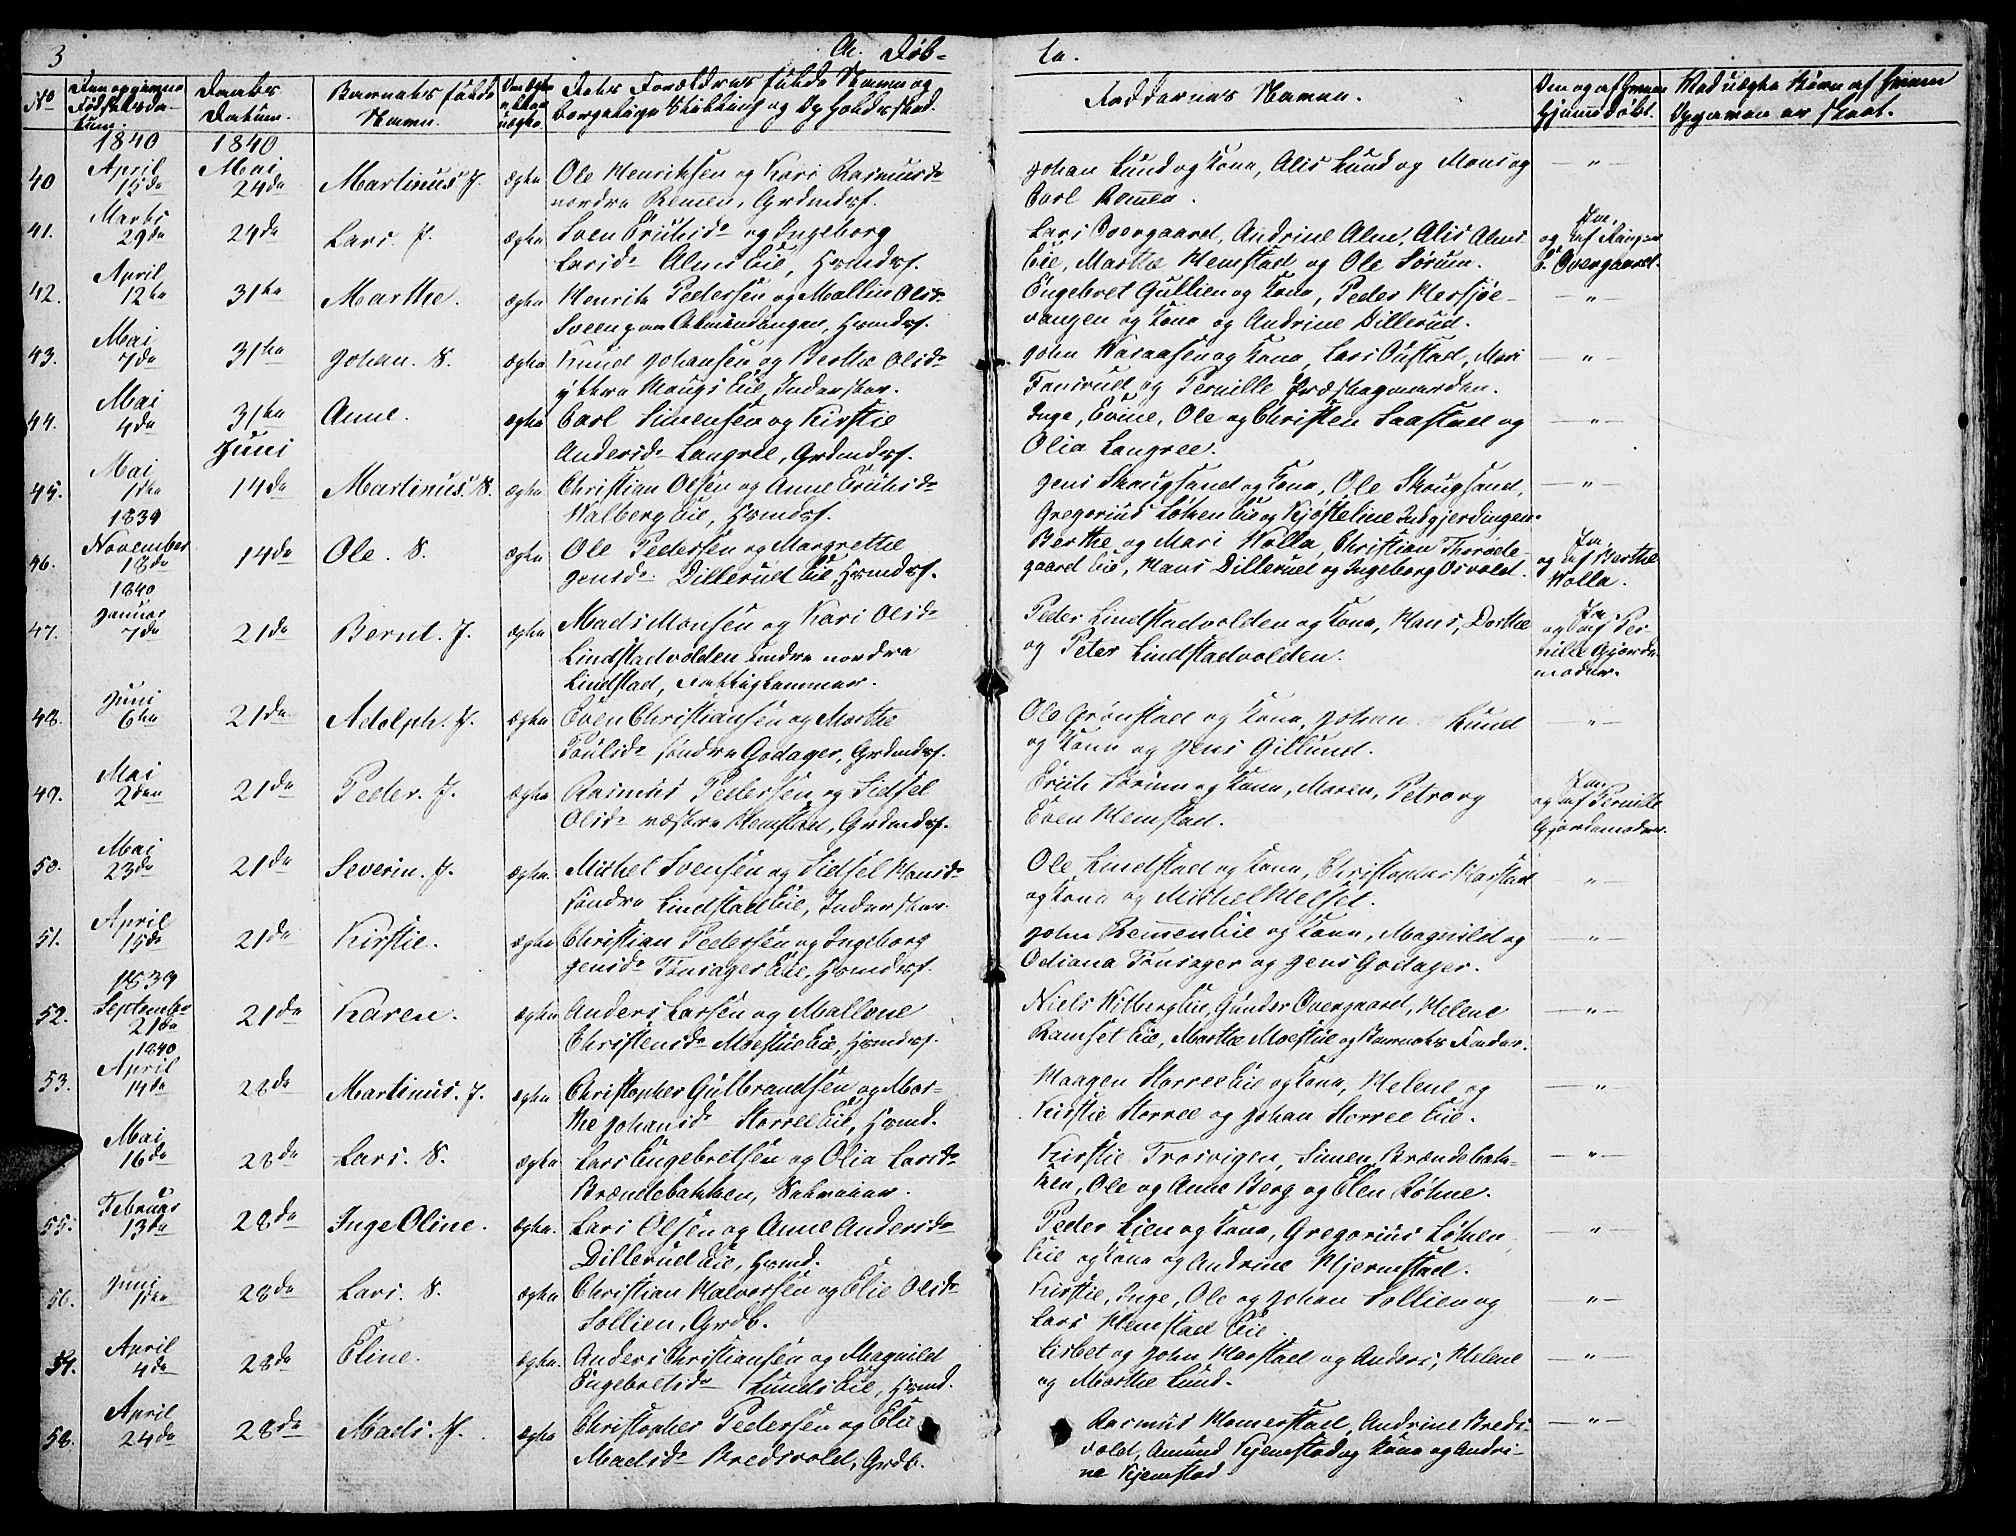 3 A. Døb- te.
No
Den opgivne Fødselsda- tum.
Daabs Datum.
Barnets fulde Navn.
Om ægte eller uægte.
Dets Forældres fulde Navne og
borgelige Stilling og Opholdssted.
Faddernes Navne.
Om og af hvem hjemmedøbt.
Ved uægte Børn af hvem
Opgaven er skeet.
1840 1840
40 April 15de Mai 24de Martinus. J. ægte Ole Henriksen og Kari Rasmusd:
nordre Remen, Grdmdsf.
Johan Lund og Kone, Alis Lund og Mons og
Carl Remen. — " —
41. Marts 29de 24de Lars. J. ægte Sven Erichsd: og Ingeborg
Larsd: Alms Eie, Hsmdsf.
Lars Overgaard, Andrine Alm, Alis Alms
Eie, Marthe Hemstad og Ole Sørum.
Ja, og af
E. Overgaard.
42. April 12te 31te Marthe. ægte Henrik Pedersen og Mallin Olsd:
Sveen paa Almindingen, Hsmdsf.
Engebret Gullien og Kone, Peder Mersjøe-
vangen og Kone og Andrine Dillerud. — " —
43. Mai 7de 31te Johan. N. ægte Knud Johansen og Berthe Olsd:
yttre Hougs Eie, Inderster.
John Aaraasen og Kone, Lars Onstad, Mari
Fonsrud og Pernille Præstegaarden. — " —
44. Mai 4de 31te Anne. ægte Carl Simensen og Kirstie
Andersd: Langree, Grdmdsf.
Inge, Evine, Ole og Christen Saastad og
Olia Langree. — " —
Juni
45. Mai 1ste 14de Martinus. N. ægte Christian Olsen og Anne Erichsd:
Walberg Eie, Hsmdsf.
Jens Skougsand og Kone, Ole Skougsand,
Gregorius Løken Eie og Kjøsteline Indgjerdingen. — " —
1839
46. November 18de 14de Ole. N. ægte Ole Pedersen og Margrethe
Jensd: Dillerud Eie, Hsmdsf.
Berthe og Mari Wolla, Christian Thorode-
gaard Eie, Hans Dillerud og Ingeborg Osvold.
Ja, og af Berthe
Wolla.
1840
47. Januar 7de 21de Bernt. J. ægte Mads Monsen og Kari Olsd:
Lindstadvolden under nordre
Lindstad, Fattiglemmer.
Peder Lindstadvolden og Kone, Hans, Dorthe
og Peter Lindstadvolden.
Ja, og af Per-
nille Gjorde-
moder.
48. Juni 6te 21de Adolph. J. ægte Even Christiansen og Marthe
Poulsd: søndre Godager, Grdmdsf.
Ole Grønstad og Kone, Johan Lund
og Kone og Jens Gillund. — " —
49. Mai 2den 21de Peder. J. ægte Rasmus Pedersen og Sidsel
Olsd: væstre Hemstad, Grdmdsf.
Erich Sørum og Kone, Maren, Petro og
Even Hemstad.
Ja, og af Pernille
Gjordemoder.
50. Mai 23de 21de Severin. J. ægte Michel Svensen og Sidsel Hansd:
søndre Lindstad Eie, Inderster.
Ole Lindstad og Kone, Christopher Harstad
og Kone og Michel Melset. — " —
51. April 15de 21de Kirstie. ægte Christian Pedersen og Ingeborg
Jensd: Tonsager Eie, Hsmdsf.
John Remen Eie og Kone, Magnild og
Ediana Tonsager og Jens Godager. — " —
1839
52. September 21de 21de Karen. ægte Anders Larsen og Mallene
Christensd: Moestue Eie, Hsmdsf.
Niels Wilberg Eie, Gunder Overgaard, Helene
Ramset Eie, Marthe Moestue og Barnets Fader. — " —
1840
53. April 14de 28de Martinus. J. ægte Christopher Gulbrandsen og Mar-
the Johansd: Storree Eie, Hsmd.
Haagen Storree Eie og Kone, Helene og
Kirstie Storree og Johan Storree Eie. — " —
Mai 16de 28de Lars. N. ægte Lars Engebretsen og Olia Larsd:
Brændebakken, Selveier.
Kirstie Trosvigen, Simen Brændebak-
ken, Ole og Anne Berg og Elen Røhne. — " —
55. Februar 13de 28de Inge Oline. ægte Lars Olsen og Anne Andersd:
Dillerud Eie, Hsmd.
Peder Lien og Kone, Gregorius Løken
Eie og Kone og Andrine Hjernstad. — " —
56. Juni 1ste 28de Lars. N. ægte Christian Halvorsen og Elie Olsd:
Sollien, Grdb.
Kirstie, Inge, Ole og Johan Sollien og
Lars Hemstad Eie. — " —
57. April 4de 28de Eline. ægte Anders Christiansen og Magnild
Engebretsd: Lunds Eie, Hsmd.
Lisbet og John Harstad og Anders, Helene
og Marthe Lund. — " —
58. April 24de 28de Mads. J. ægte Christopher Pedersen og Eli
Madsd: Bredsvold, Grdb.
Rasmus Hemerstad, Andrine Breds-
vold, Amund Kjemstad og Kone og Andri-
ne Kjemstad — " —